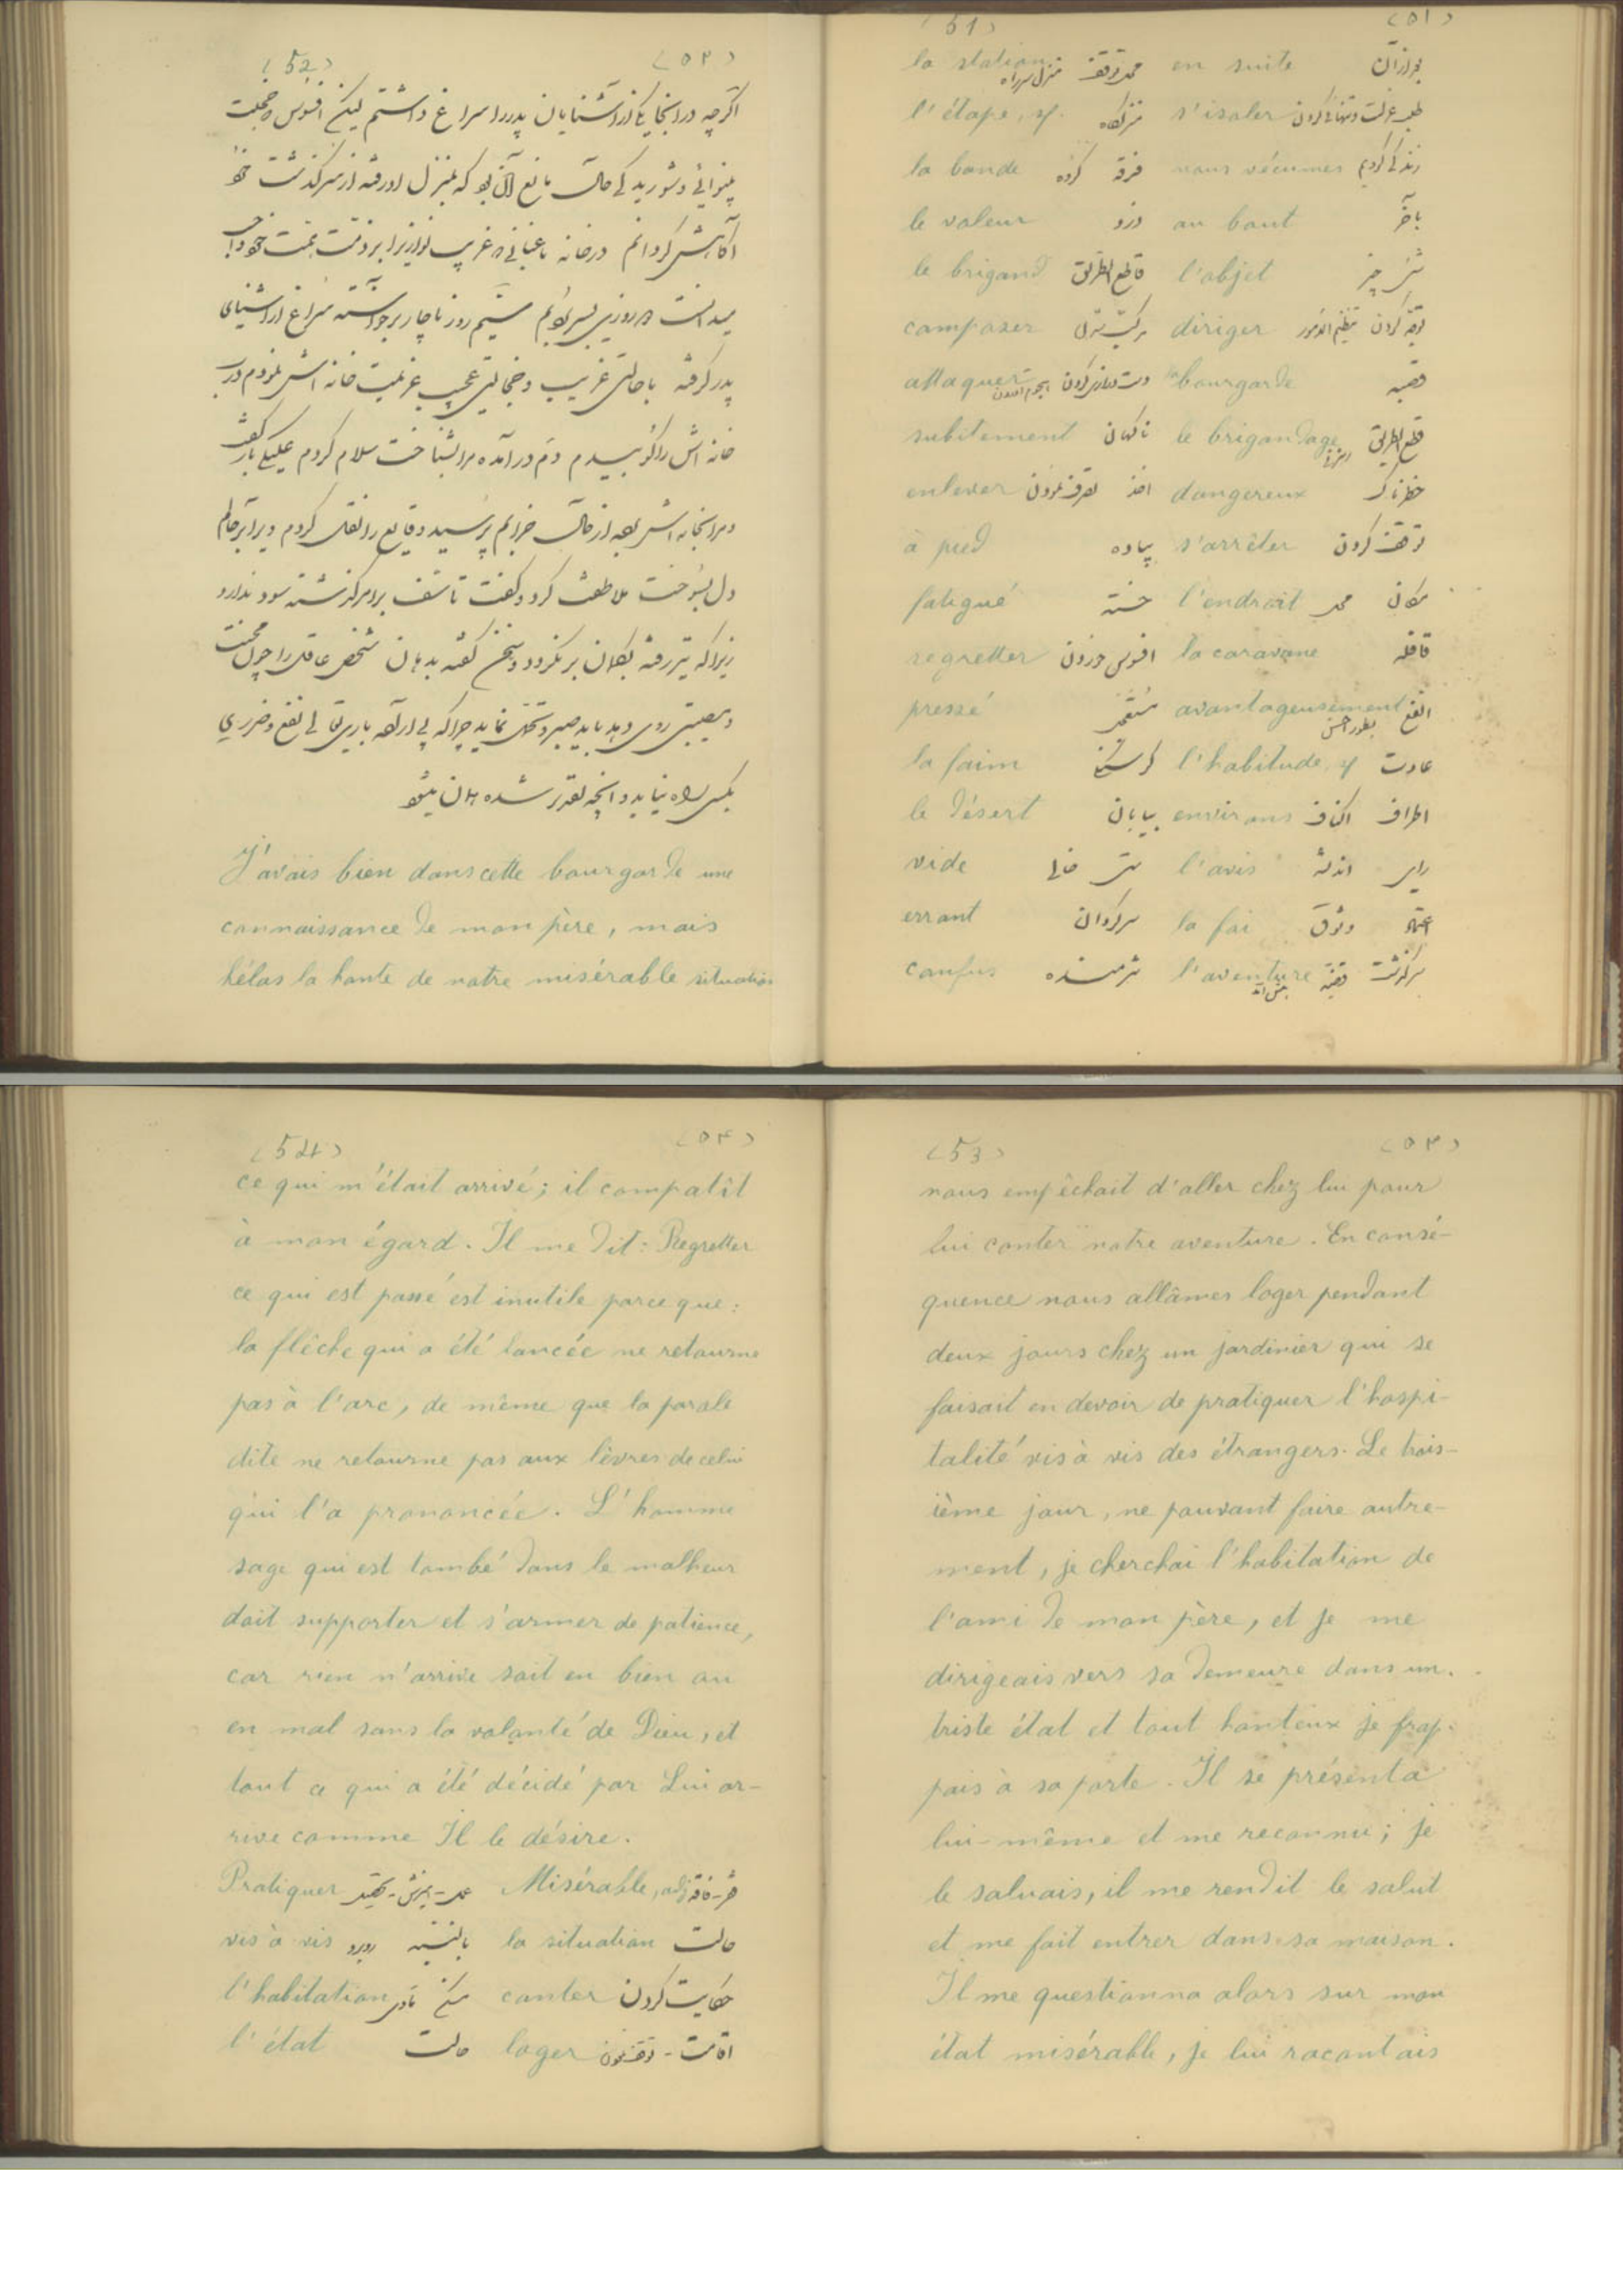 (51) (٥١)
la station محل توقف منزل سر راه en suite بعد از آن
l'étape, f. منزلگاه s'isoler طلب عزلت و تنهائی کردن
la bande فرقه گروه nous vécumes زندگی کردیم
le voleur دزد au bout بآخر
le brigand قاطع الطریق l'objet شی چیز
composer مرکب diriger توجه کردن تنظیم الامور
attaquer دست درازی کردن هجوم la bourgarde قصبه
subitement ناگهان le brigandage قطع الطریق
enlever اخذ تصرف نمودن dangereux خطرناک
à pied پیاده s'arrêter توقف کردن
fatigué خسته l'endroit محل مکان
regretter افسوس خوردن la caravane قافله
pressé مستعجل avantageusement انفع بطور احسن
la faim گرسنگی l'habitude, f عادت
le désert بیابان environs اطراف اکناف
vide تهی خالی l'avis رای اندیشه
errant سرگردان la foi وثوق اعتماد
confus شرمنده l'aventure سرگذشت قضیه
(52) (٥٢)
اگرچه در اینجا یکی از آشنایان پدر را سراغ داشتم لیکن افسوس خجلت
بینوائی و شوریدگی حال مانع آن بود که بمنزل او رفته از سرگذشت خود
آگاهش گردانم در خانه باغبانی که غریب نوازی را بر ذمت همت خود واجب
میدانست دو روزی بسر بودیم سیم روز ناچار برخواسته سراغ از آشنای
پدر گرفته با حالتی غریب و خجالتی عجیب عزیمت خانه اش نمودم درب
خانه اش را کوبیدم دم در آمده مرا بشناخت سلام کردم علیکی باز گفت
و مرا بخانه اش برد از حال خرابم پرسید وقایع را نقل کردم ویرا بر حالم
دل بسوخت ملاطفت کرد و گفت تأسف بر امر گذشته سود ندارد
زیرا که تیر رفته بکمان بر نگردد و سخن گفته بدهان شخص عاقل را چون محنت
و مصیبتی روی دهد باید صبر و تحمل نماید چرا که بی اراده باریتعالی نفع و ضرری
بکسی راه نیابد و آنچه تقدیر شده همان میشود
J'avais bien dans cette bourgarde une
connaissance de mon père, mais
hélas la honte de notre misérable situation
(53) (٥٣)
nous empêchait d'aller chez lui pour
lui conter notre aventure. En consé-
quence nous allâmes loger pendant
deux jours chez un jardinier qui se
faisait en devoir de pratiquer l'hospi-
talité vis à vis des étrangers. Le trois-
ième jour, ne pouvant faire autre-
ment, je cherchai l'habitation de
l'ami de mon père, et je me
dirigeais vers sa demeure dans un
triste état et tout honteux je frap-
pais à sa porte. Il se présenta
lui-même et me reconnu; je
le saluais, il me rendit le salut
et me fait entrer dans sa maison.
Il me questionna alors sur mon
état misérable, je lui racontais
(54) (٥٤)
ce qui m'était arrivé; il compatît
à mon égard. Il me dit: Regretter
ce qui est passé est inutile parce que:
la flêche qui a été lancée ne retourne
pas à l'arc, de même que la parole
dite ne retourne pas aux lèvres de celui
qui l'a prononcée. L'homme
sage qui est tombé dans le malheur
doit supporter et s'armer de patience,
car rien n'arrive soit en bien ou
en mal sans la volonté de Dieu, et
tout ce qui a été décidé par Lui ar-
rive comme Il le désire.
Pratiquer عمل - Misérable, adj
vis à vis روبرو بالنسبه la situation حالت
l'habitation مسکن مأوی conter حکایت کردن
l'état حالت loger اقامت - توقف نمودن